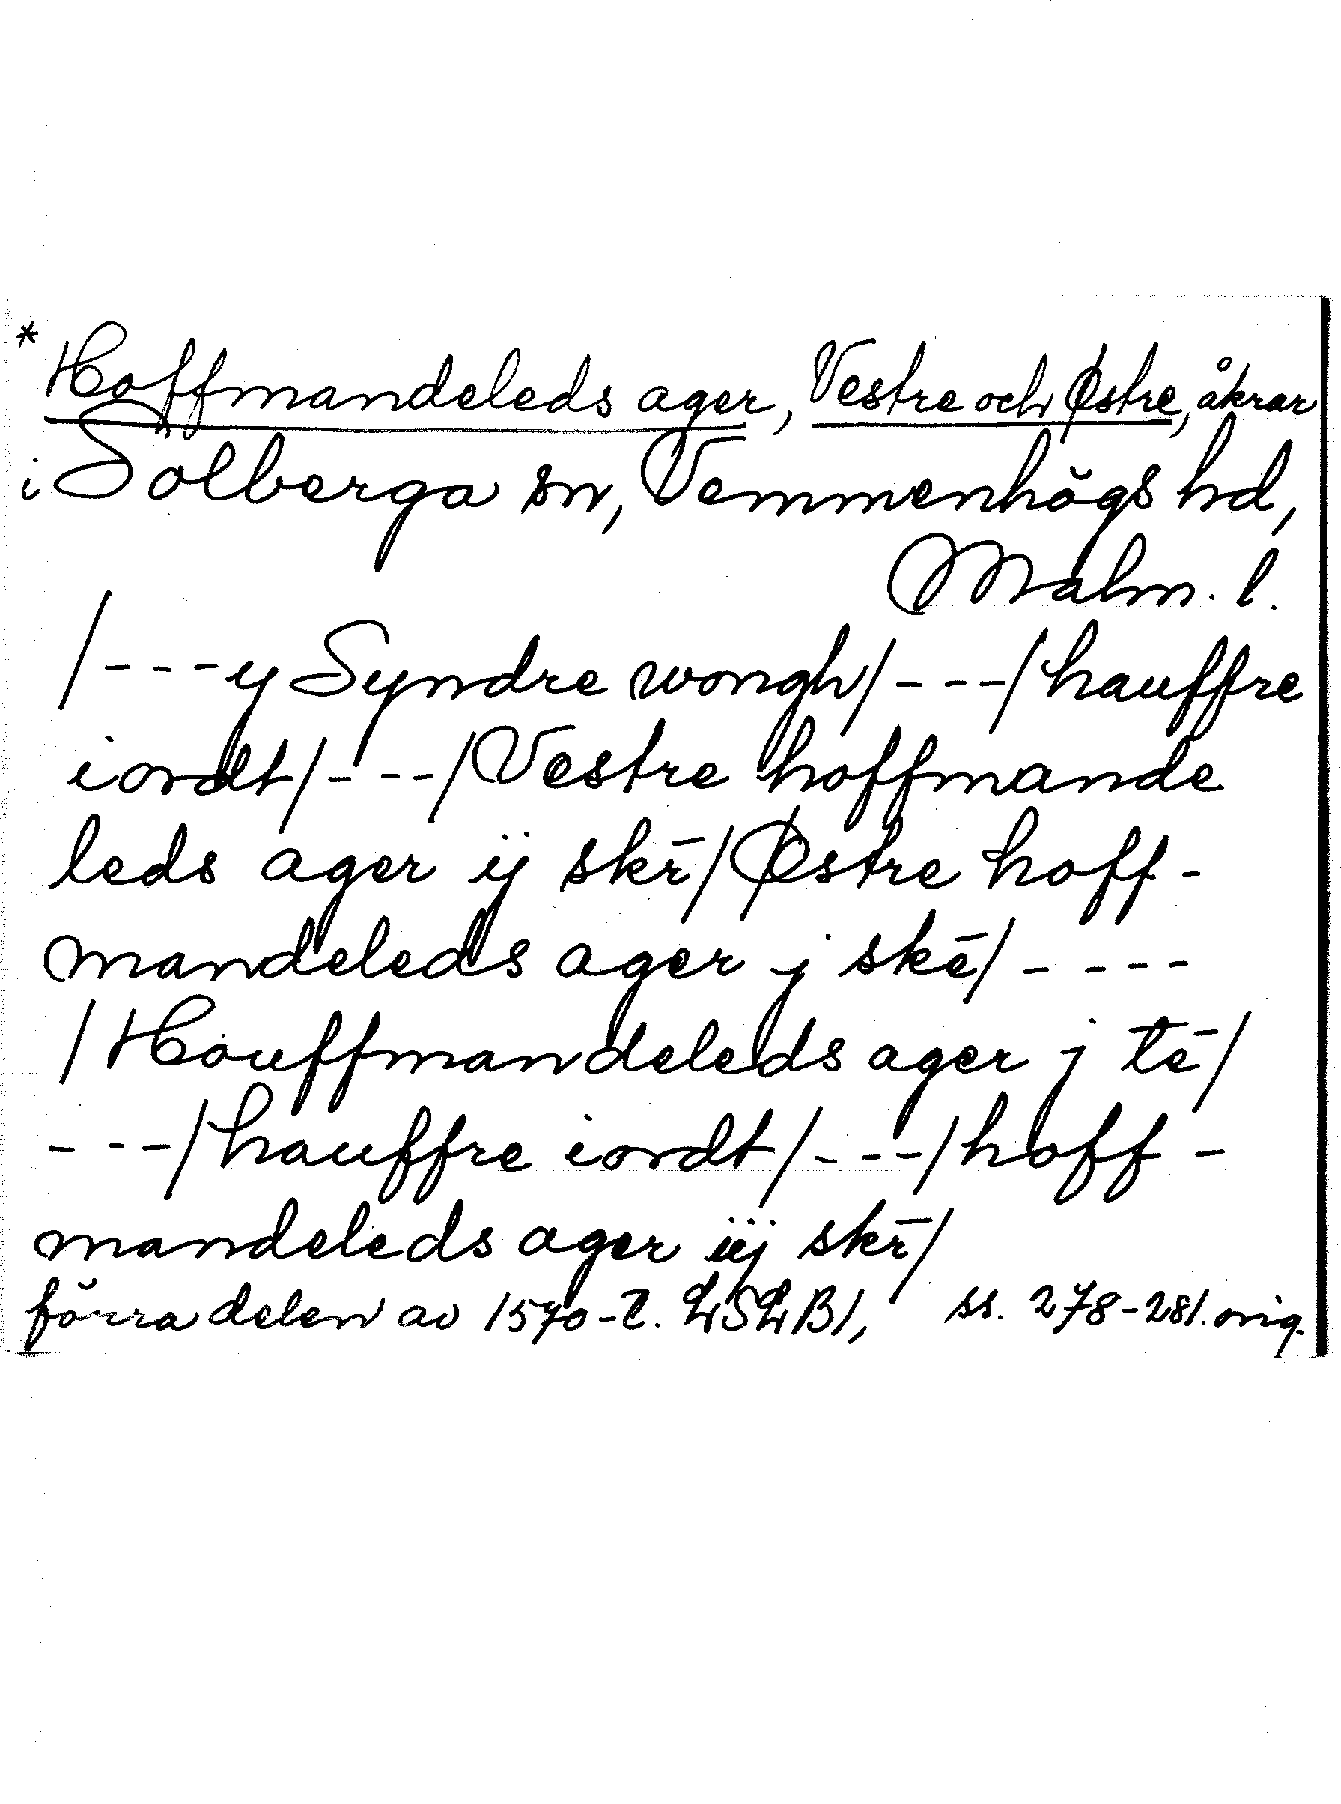 * Hoffmandeleds ager, Vestre och Østre, åkrar
i Solberga sn, Vemmenhögs hd,
Malm. l.
/---y Syndre wongh/---/hauffre
iordt/---/Vestre hoffmande
leds ager ij skr̄/Østre hoff-
mandeleds ager j skē/----
/Houffmandeleds ager j tē/
---/hauffre iordt/---/hoff-
mandeleds ager iij skr̄/
förra delen av 1570-t. LSLB1, ss. 278-281. orig.